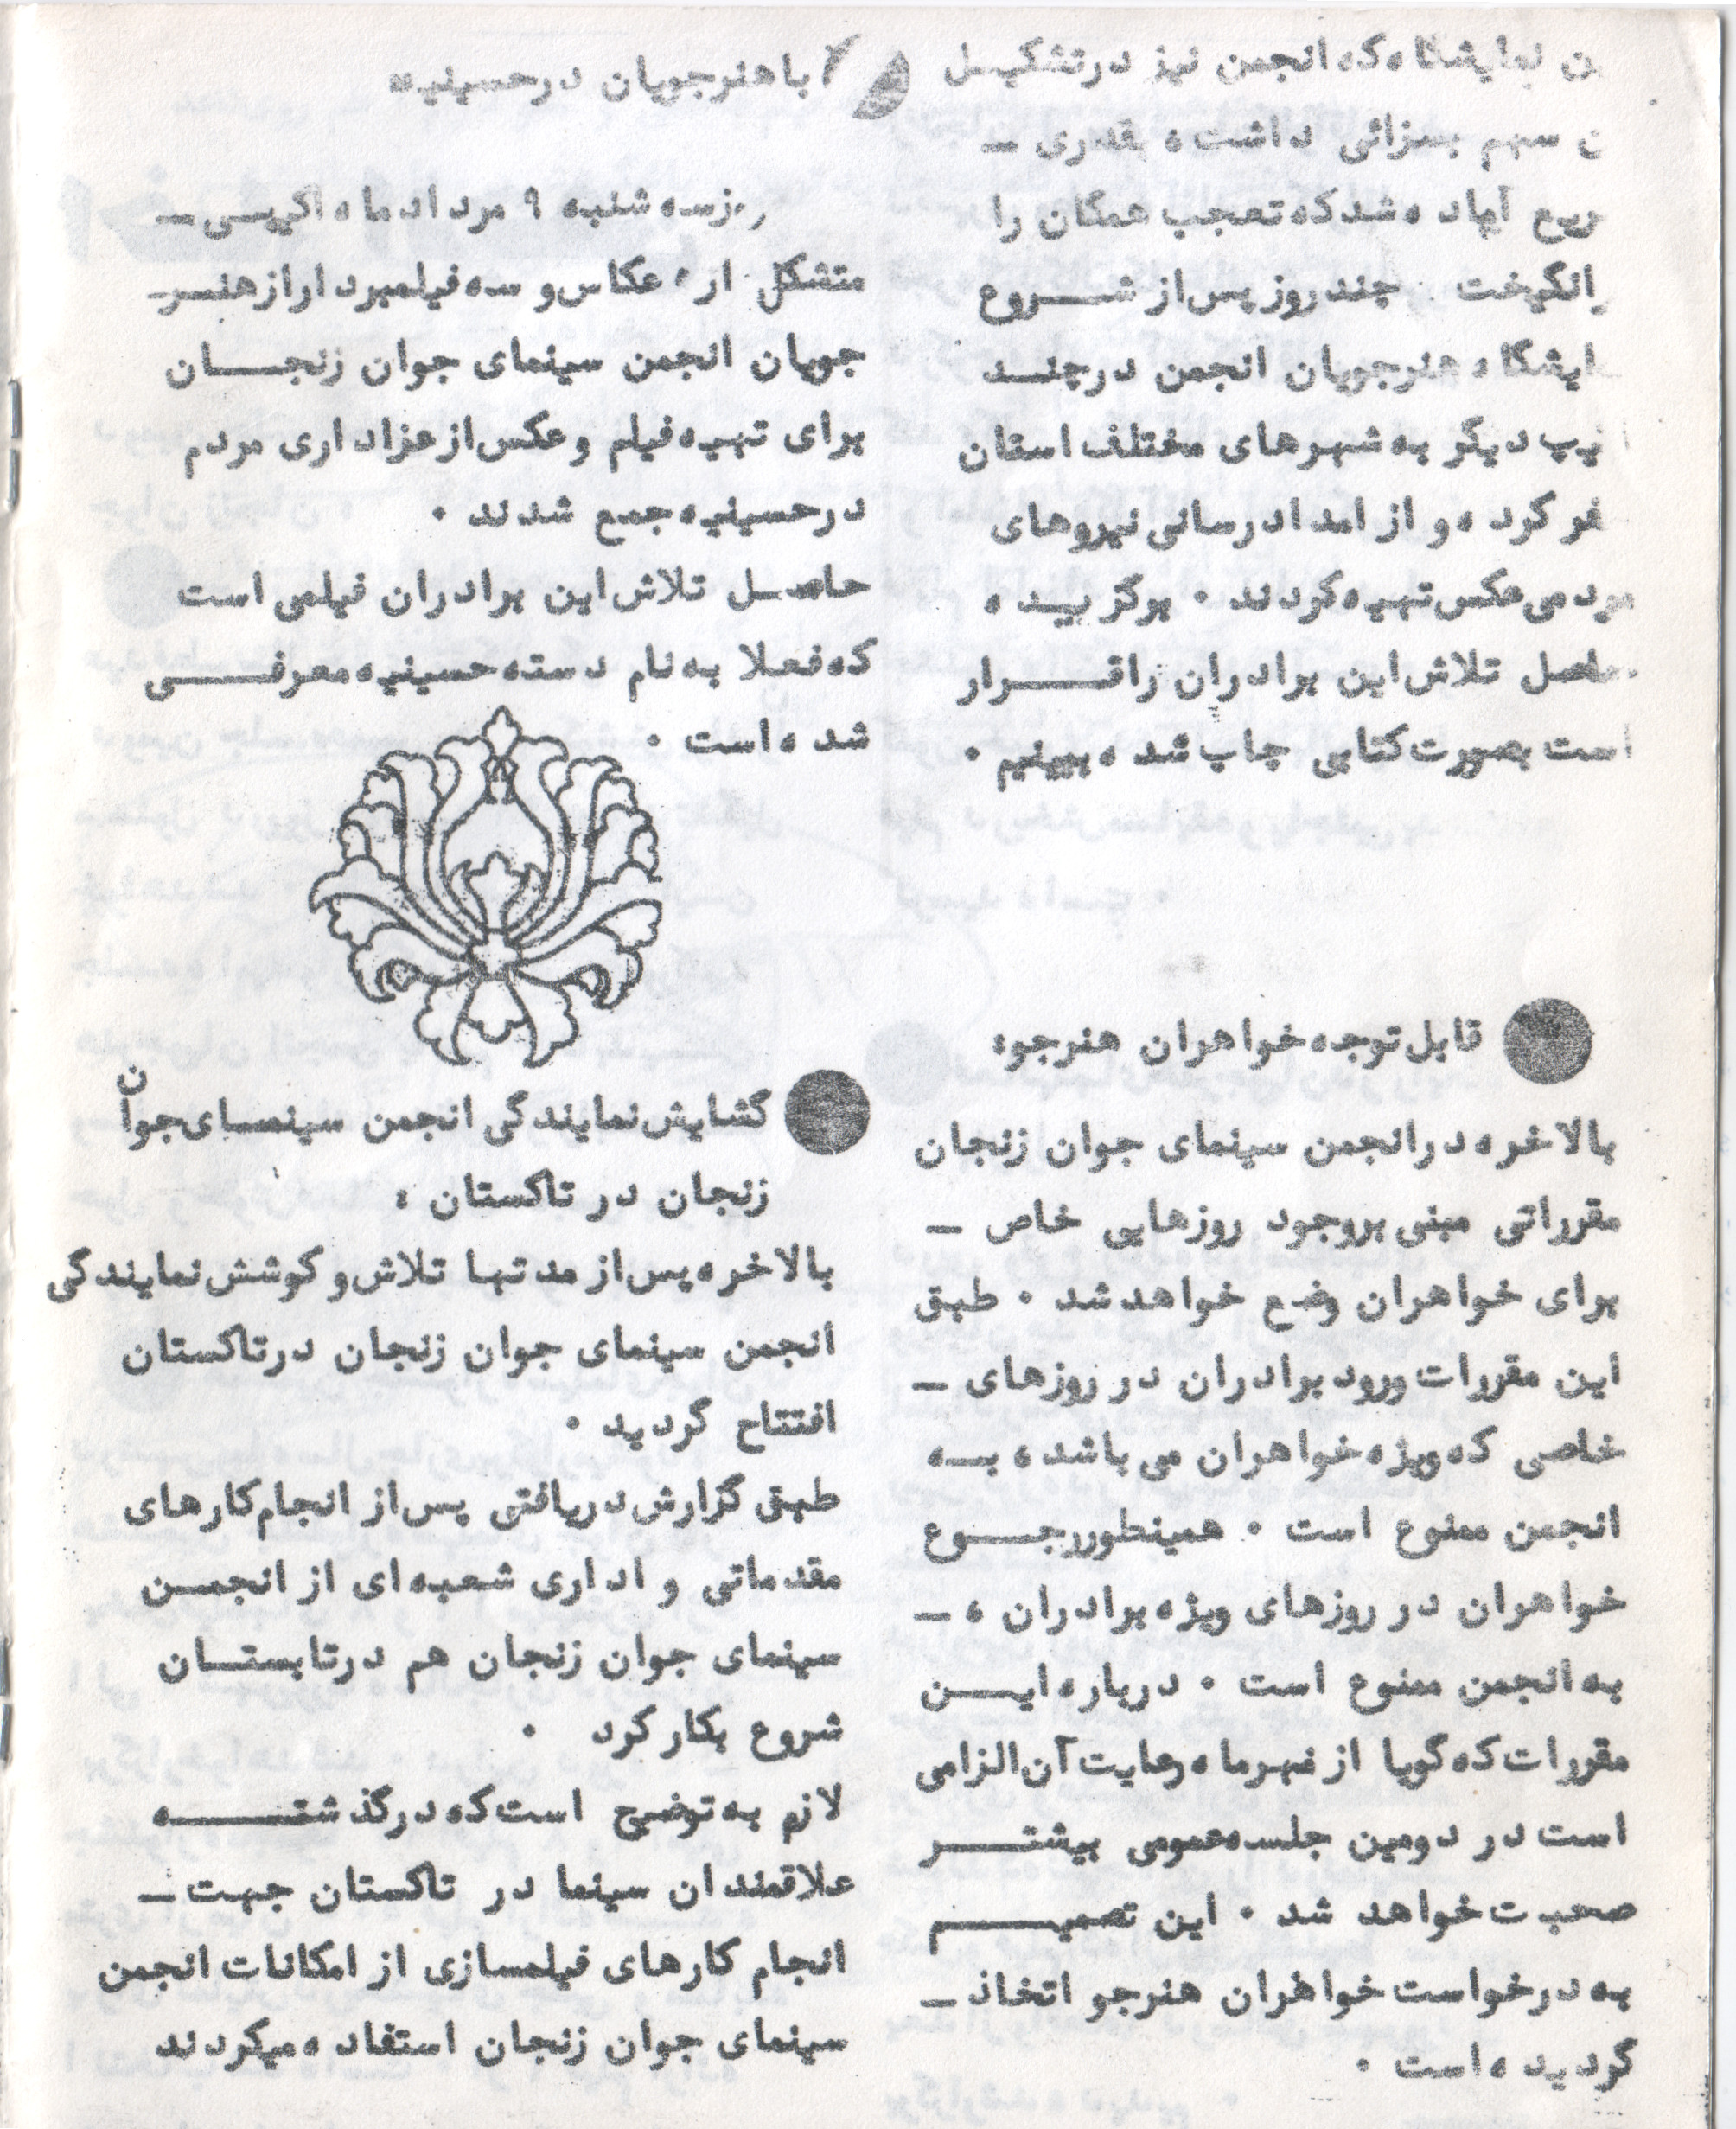 نمایشگاه که انجمن نیز در تشکیل
سهم بسزائی داشت، بقدری ـ
آماده شد که تعجب همگان را
انگیخت . چند روز پس از شروع
هنرجویان انجمن در چند
دیگر به شهرهای مختلف استان
کرده و از امدادرسانی نیروهای
مردمی عکس تهیه کردند . برگزیده
حاصل تلاش این برادران راقرار
است بصورت کتابی چاپ شده ببینیم .
قابل توجه خواهران هنرجو:
بالاخره در انجمن سینمای جوان زنجان
مقرراتی مبنی بر وجود روزهایی خاص ـ
برای خواهران وضع خواهد شد . طبق
این مقررات ورود برادران در روزهای ـ
خاصی که ویژه خواهران می باشد، به
انجمن ممنوع است . همینطور رجوع
خواهران در روزهای ویژه برادران ، ـ
به انجمن ممنوع است . درباره این
مقررات که گویا از مهرماه رعایت آن الزامی
است در دومین جلسه عمومی بیشتر
صحبت خواهد شد . این تصمیم
به درخواست خواهران هنرجو اتخاذ ـ
گردیده است .
با هنرجویان در حسینیه
سه شنبه ۹ مردادماه اکیپی ـ
متشکل از عکاس و سه فیلمبردار از هنر ـ
جویان انجمن سینمای جوان زنجان
برای تهیه فیلم و عکس از عزاداری مردم
در حسینیه جمع شدند .
حاصل تلاش این برادران فیلمی است
که فعلا به نام دسته حسینیه معرفی
شده است .
گشایش نمایندگی انجمن سینمای جوان
زنجان در تاکستان :
بالاخره پس از مدتها تلاش و کوشش نمایندگی
انجمن سینمای جوان زنجان در تاکستان
افتتاح گردید .
طبق گزارش دریافتی پس از انجام کارهای
مقدماتی و اداری شعبه ای از انجمن
سینمای جوان زنجان هم در تابستان
شروع بکار کرد .
لازم به توضیح است که در گذشته
علاقمندان سینما در تاکستان جهت ـ
انجام کارهای فیلمسازی از امکانات انجمن
سینمای جوان زنجان استفاده میکردند